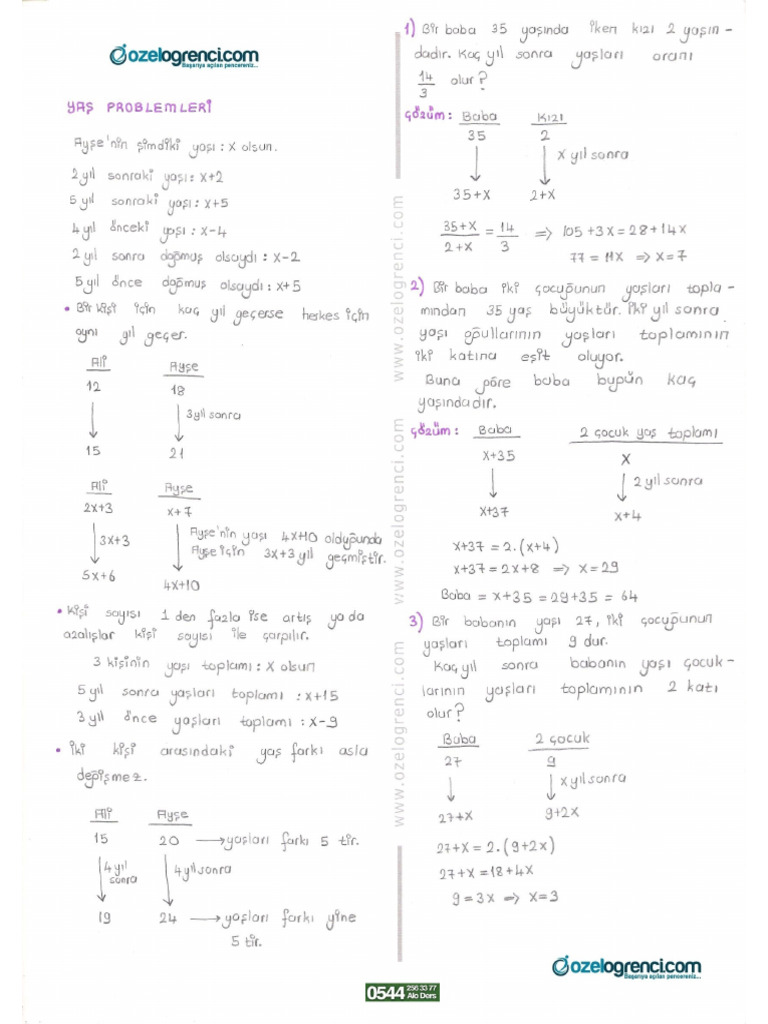 ozelogrenci.com
Başarıya açılan pencereniz...
YAŞ PROBLEMLERİ
Ayşe'nin şimdiki yaşı : x olsun.
2 yıl sonraki yaşı : x+2
5 yıl sonraki yaşı : x+5
4 yıl önceki yaşı : x-4
2 yıl sonra doğmuş olsaydı : x-2
5 yıl önce doğmuş olsaydı : x+5
• Bir kişi için kaç yıl geçerse herkes için
aynı yıl geçer.
Ali Ayşe
12 18
3 yıl sonra
15 21
Ali Ayşe
2x+3 x+7
3x+3 Ayşe'nin yaşı 4x+10 olduğunda
Ayşe için 3x+3 yıl geçmiştir.
5x+6 4x+10
• Kişi sayısı 1 den fazla ise artış ya da
azalışlar kişi sayısı ile çarpılır.
3 kişinin yaşı toplamı : x olsun
5 yıl sonra yaşları toplamı : x+15
3 yıl önce yaşları toplamı : x-9
• İki kişi arasındaki yaş farkı asla
değişmez.
Ali Ayşe
15 20 → yaşları farkı 5 tir.
4 yıl sonra 4 yıl sonra
19 24 → yaşları farkı yine
5 tir.
1) Bir baba 35 yaşında iken kızı 2 yaşın-
dadır. Kaç yıl sonra yaşları oranı
14/3 olur?
Çözüm : Baba Kızı
35 2
x yıl sonra
35+x 2+x
35+x/2+x = 14/3 ⇒ 105+3x=28+14x
77=11x ⇒ x=7
2) Bir baba iki çocuğunun yaşları topla-
mından 35 yaş büyüktür. İki yıl sonra
yaşı oğullarının yaşları toplamının
iki katına eşit oluyor.
Buna göre baba bugün kaç
yaşındadır.
Çözüm : Baba 2 çocuk yaş toplamı
x+35 x
2 yıl sonra
x+37 x+4
x+37 = 2.(x+4)
x+37 = 2x+8 ⇒ x=29
Baba = x+35 = 29+35 = 64
3) Bir babanın yaşı 27, iki çocuğunun
yaşları toplamı 9 dur.
Kaç yıl sonra babanın yaşı çocuk-
larının yaşları toplamının 2 katı
olur?
Baba 2 çocuk
27 9
x yıl sonra
27+x 9+2x
27+x = 2.(9+2x)
27+x = 18+4x
9=3x ⇒ x=3
www.ozelogrenci.com
www.ozelogrenci.com
www.ozelogrenci.com
ozelogrenci.com
Başarıya açılan pencereniz...
0544 256 33 77
Alo Ders